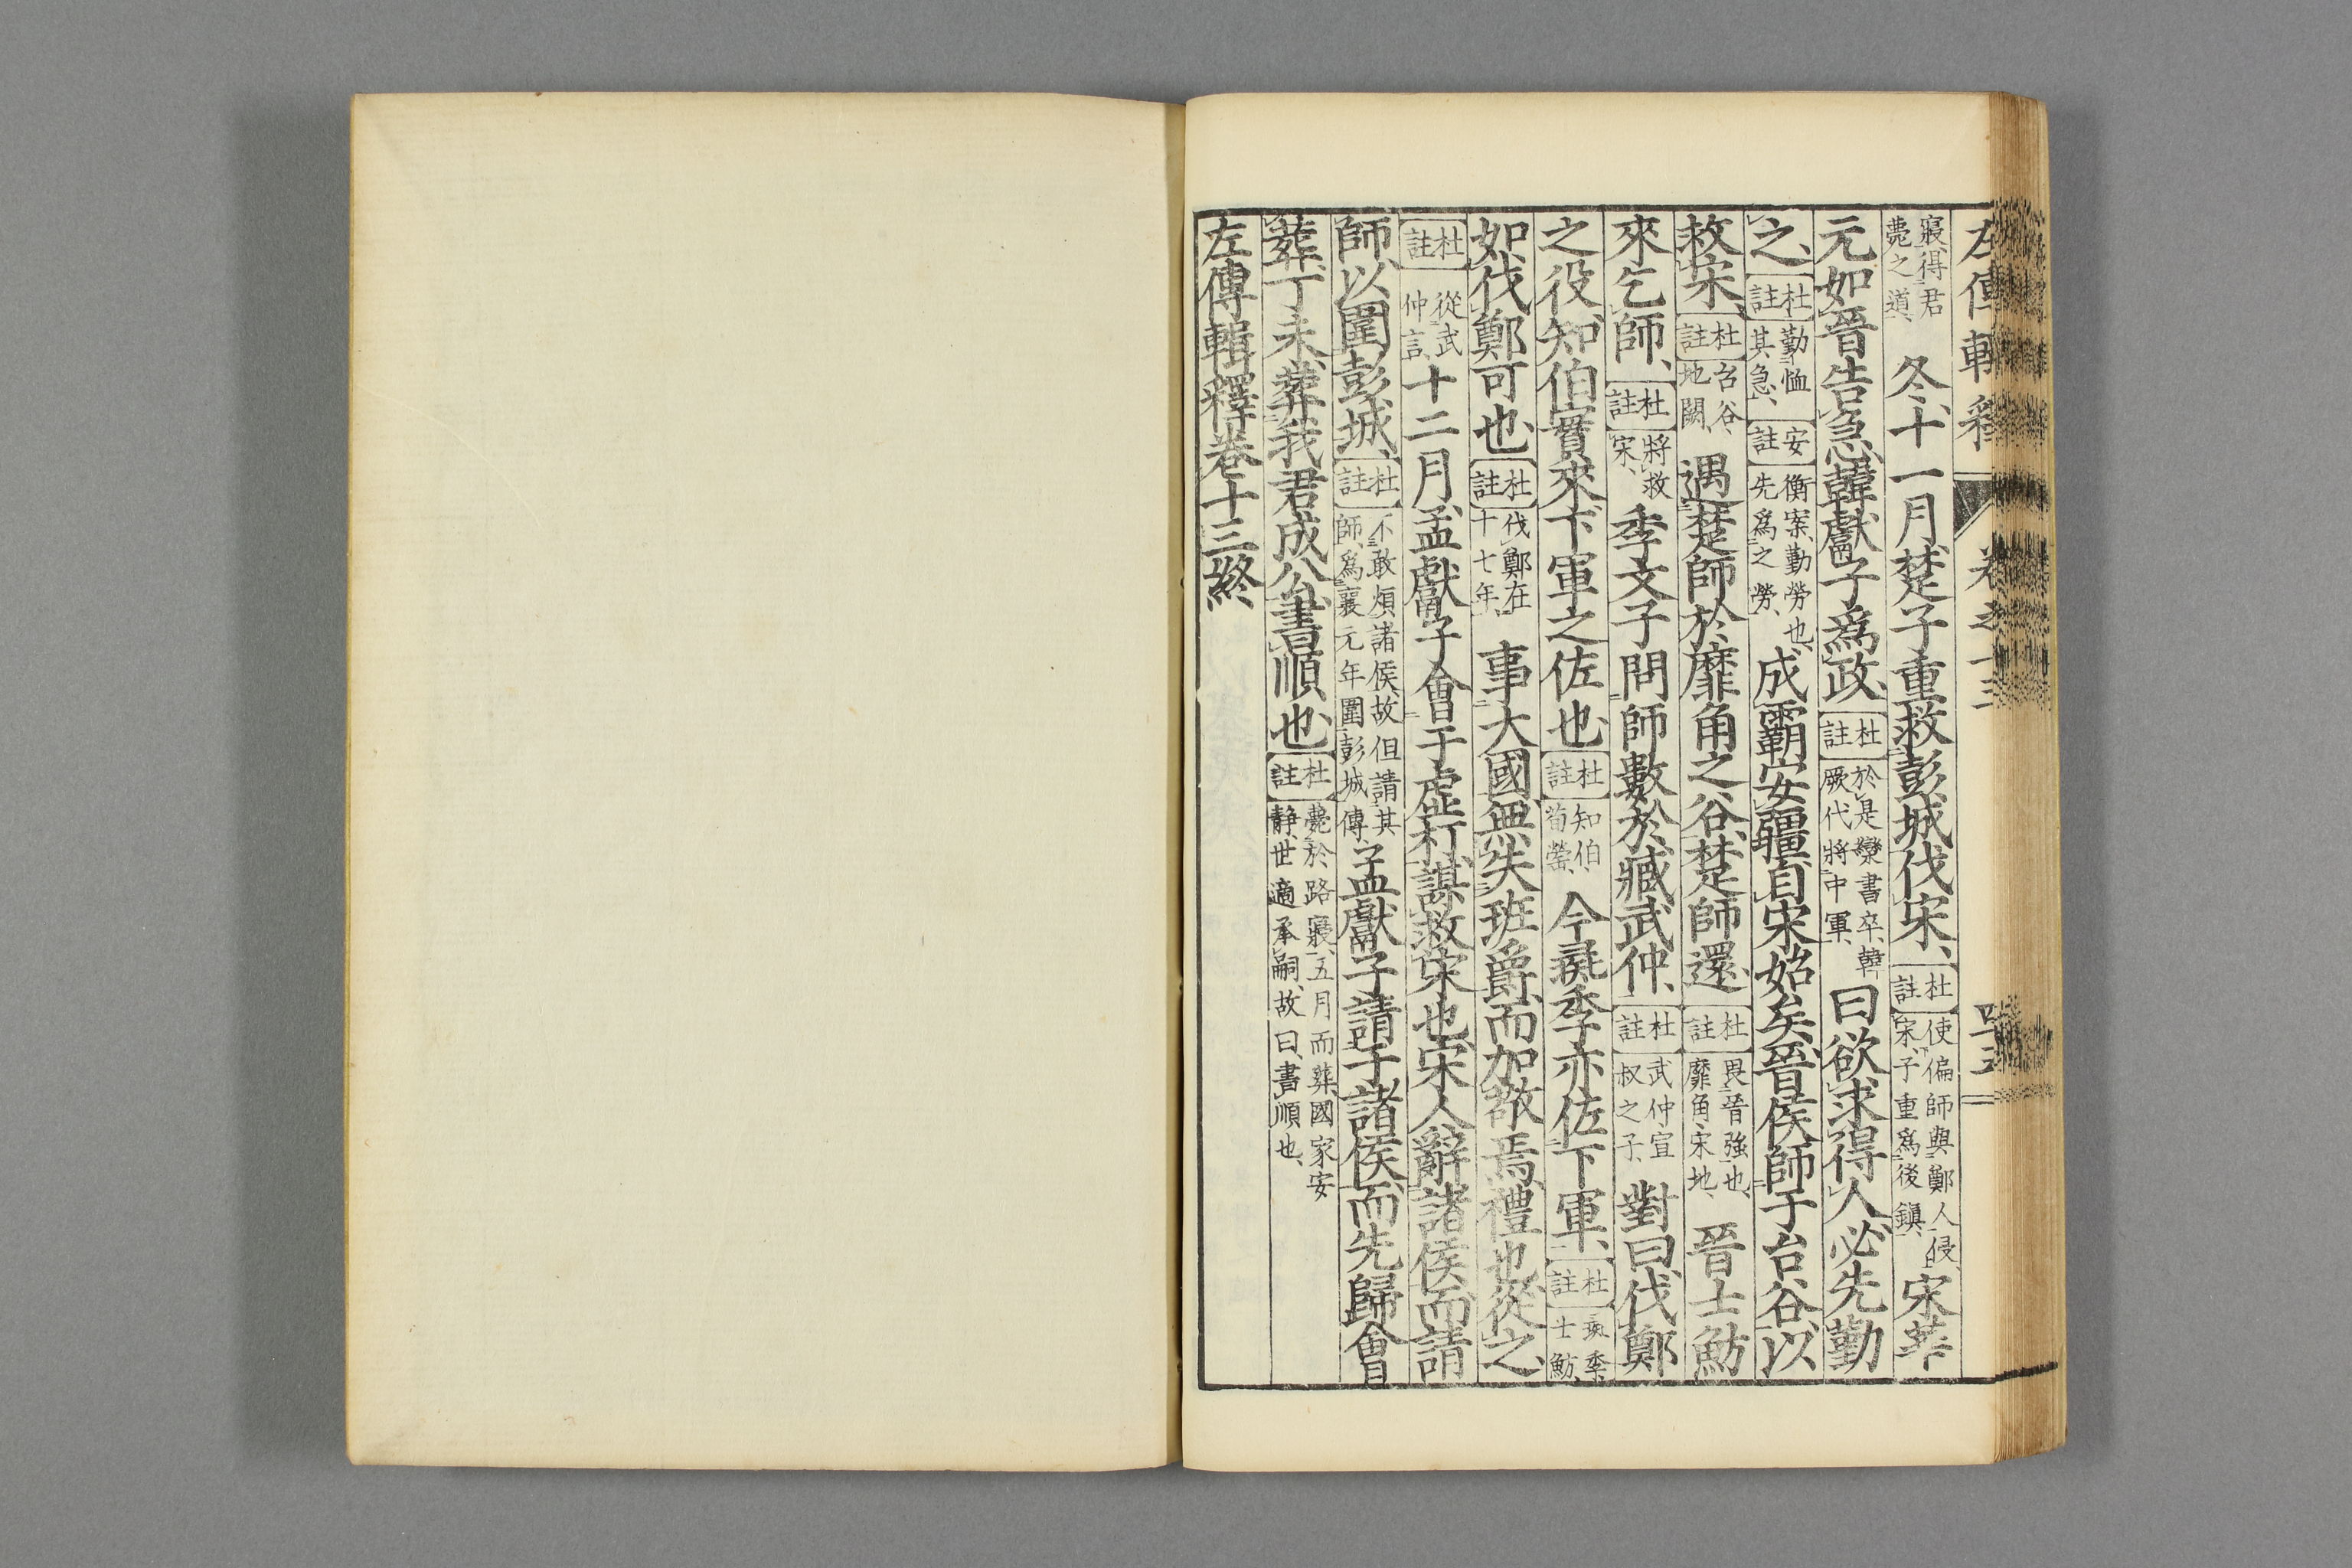 左傳輯釋 卷之十三 四十五
寢得君薨之道、 冬十一月、楚子重救彭城伐宋、杜註使偏師與鄭人侵宋、子重爲後鎮、宋華
元如晉告急、韓獻子爲政、杜註於是欒書卒、韓厥代將中軍、曰、欲求得人、必先勤
之、杜註勤恤其急、安註衡案、勤勞也、先爲之勞、成霸安疆、自宋始矣、晉侯師于台谷以
救宋、杜註台谷地闕、遇楚師於靡角之谷、楚師還、杜註畏晉強也、靡角、宋地、晉士魴
來乞師、杜註將救宋、季文子問師數於臧武仲、杜註武仲宣叔之子、對曰、伐鄭
之役、知伯實來、下軍之佐也、杜註知伯、荀罃、今彘季亦佐下軍、杜註彘季、士魴、
如伐鄭可也、杜註伐鄭在十七年、事大國、無失班爵、而加敬焉、禮也、從之、
杜註從武仲言、十二月、孟獻子會于虛朾、謀救宋也、宋人辭諸侯、而請
師以圍彭城、杜註不敢煩諸侯、故但請其師、爲襄元年圍彭城傳、孟獻子請于諸侯、而先歸會
葬、丁未、葬我君成公、書順也、杜註薨於路寢、五月而葬、國家安靜、世適承嗣、故曰、書順也、
左傳輯釋卷十三終